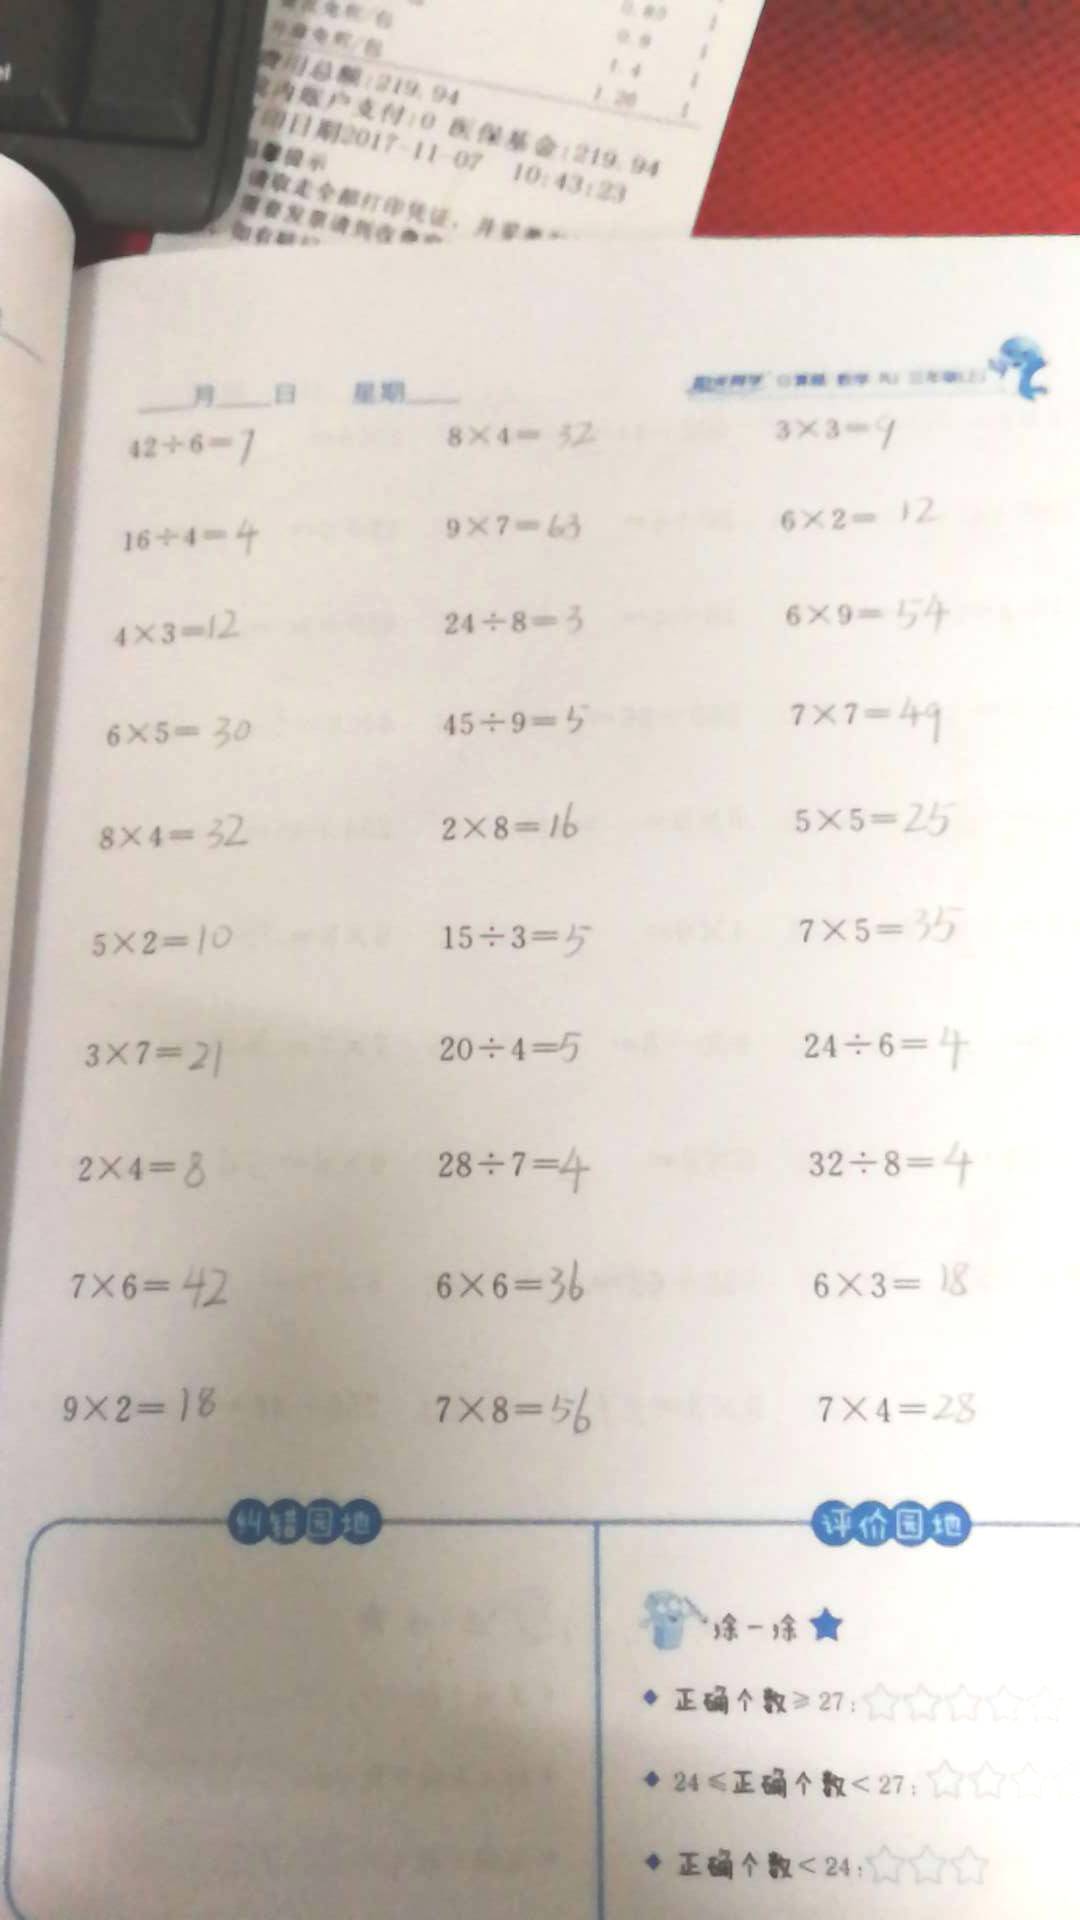 0.9 1
1.4 1
1.26 1
费用总额:219.94
账户支付:0 医保基金:219.94
印日期2017-11-07 10:43:23
请取走全部打印凭证,
月 日 星期
42÷6=7 8×4=32 3×3=9
16÷4=4 9×7=63 6×2=12
4×3=12 24÷8=3 6×9=54
6×5=30 45÷9=5 7×7=49
8×4=32 2×8=16 5×5=25
5×2=10 15÷3=5 7×5=35
3×7=21 20÷4=5 24÷6=4
2×4=8 28÷7=4 32÷8=4
7×6=42 6×6=36 6×3=18
9×2=18 7×8=56 7×4=28
纠错园地 评价园地
涂一涂★
◆ 正确个数≥27:☆☆☆☆☆
◆ 24≤正确个数<27:☆☆☆☆
◆ 正确个数<24:☆☆☆